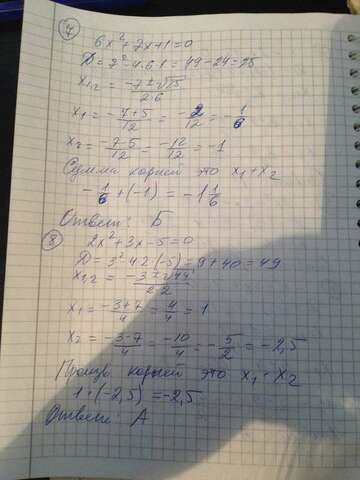 7
6x²+7x+1=0
D=7²-4·6·1=49-24=25
x₁,₂=(-7±√25)/(2·6)
x₁=(-7+5)/12=-2/12=-1/6
x₂=(-7-5)/12=-12/12=-1
Сумма корней это x₁+x₂
-1/6+(-1)=-1 1/6
Ответ: Б
8
2x²+3x-5=0
D=3²-4·2·(-5)=9+40=49
x₁,₂=(-3±√49)/(2·2)
x₁=(-3+7)/4=4/4=1
x₂=(-3-7)/4=-10/4=-5/2=-2,5
корней это x₁·x₂
1·(-2,5)=-2,5
Ответ: А